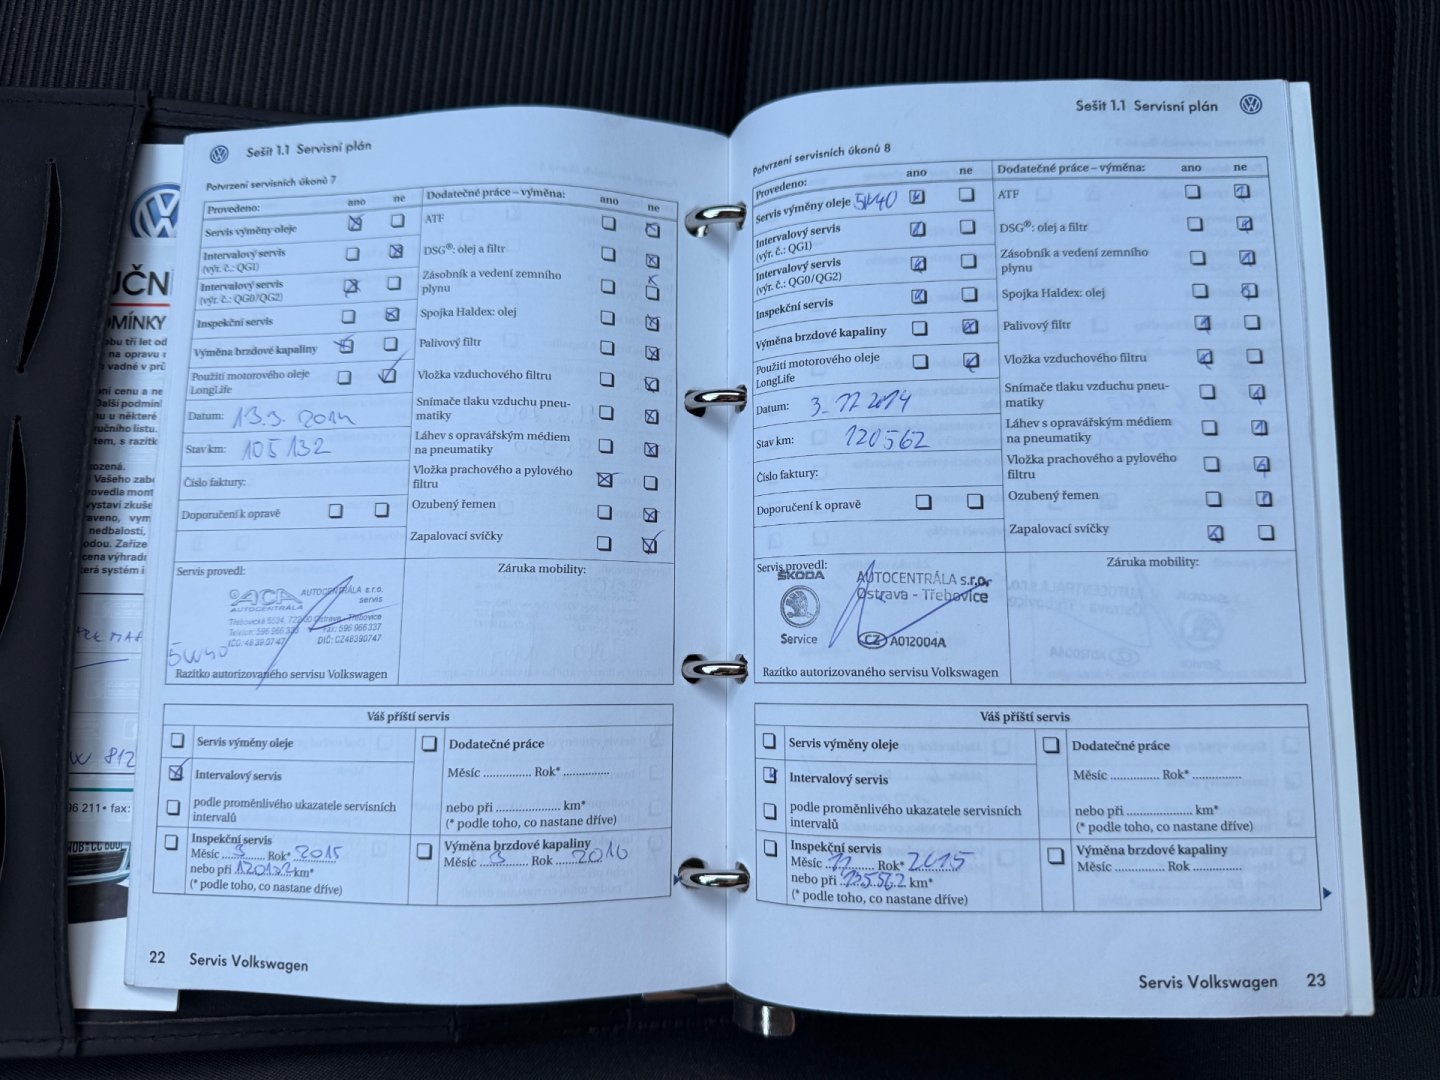 Sešit 1.1 Servisní plán
Potvrzení servisních úkonů 7
Provedeno: ano ne
Servis výměny oleje
Intervalový servis
(výr. č.: QG1)
Intervalový servis
(výr. č.: QG0/QG2)
Inspekční servis
Výměna brzdové kapaliny
Použití motorového oleje
LongLife
Datum: 13.3. 2014
Stav km: 105 132
Číslo faktury:
Doporučení k opravě
Dodatečné práce – výměna: ano ne
ATF
DSG®: olej a filtr
Zásobník a vedení zemního
plynu
Spojka Haldex: olej
Palivový filtr
Vložka vzduchového filtru
Snímače tlaku vzduchu pneu-
matiky
Láhev s opravářským médiem
na pneumatiky
Vložka prachového a pylového
filtru
Ozubený řemen
Zapalovací svíčky
Servis provedl:
ACA AUTOCENTRÁLA s.r.o.
AUTOCENTRÁLA servis
Třebovická 5524, 722 00 Ostrava - Třebovice
Telefon: 596 966 336 Fax: 596 966 337
IČO: 48 39 07 47 DIČ: CZ48390747
5W40
Razítko autorizovaného servisu Volkswagen
Záruka mobility:
Váš příští servis
Servis výměny oleje
Intervalový servis
podle proměnlivého ukazatele servisních
intervalů
Inspekční servis
Měsíc 3 Rok* 2015
nebo při 120132 km*
(* podle toho, co nastane dříve)
Dodatečné práce
Měsíc ............... Rok* ...............
nebo při ..................... km*
(* podle toho, co nastane dříve)
Výměna brzdové kapaliny
Měsíc 3 Rok 2016
22 Servis Volkswagen
Sešit 1.1 Servisní plán
Potvrzení servisních úkonů 8
Provedeno: ano ne
Servis výměny oleje 5W40
Intervalový servis
(výr. č.: QG1)
Intervalový servis
(výr. č.: QG0/QG2)
Inspekční servis
Výměna brzdové kapaliny
Použití motorového oleje
LongLife
Datum: 3. 12 2014
Stav km: 120562
Číslo faktury:
Doporučení k opravě
Dodatečné práce – výměna: ano ne
ATF
DSG®: olej a filtr
Zásobník a vedení zemního
plynu
Spojka Haldex: olej
Palivový filtr
Vložka vzduchového filtru
Snímače tlaku vzduchu pneu-
matiky
Láhev s opravářským médiem
na pneumatiky
Vložka prachového a pylového
filtru
Ozubený řemen
Zapalovací svíčky
Servis provedl:
ŠKODA AUTOCENTRÁLA s.r.o.
Ostrava - Třebovice
Service CZ A012004A
Razítko autorizovaného servisu Volkswagen
Záruka mobility:
Váš příští servis
Servis výměny oleje
Intervalový servis
podle proměnlivého ukazatele servisních
intervalů
Inspekční servis
Měsíc 11 Rok* 2015
nebo při 135562 km*
(* podle toho, co nastane dříve)
Dodatečné práce
Měsíc ............... Rok* ...............
nebo při ..................... km*
(* podle toho, co nastane dříve)
Výměna brzdové kapaliny
Měsíc ............... Rok ...............
Servis Volkswagen 23